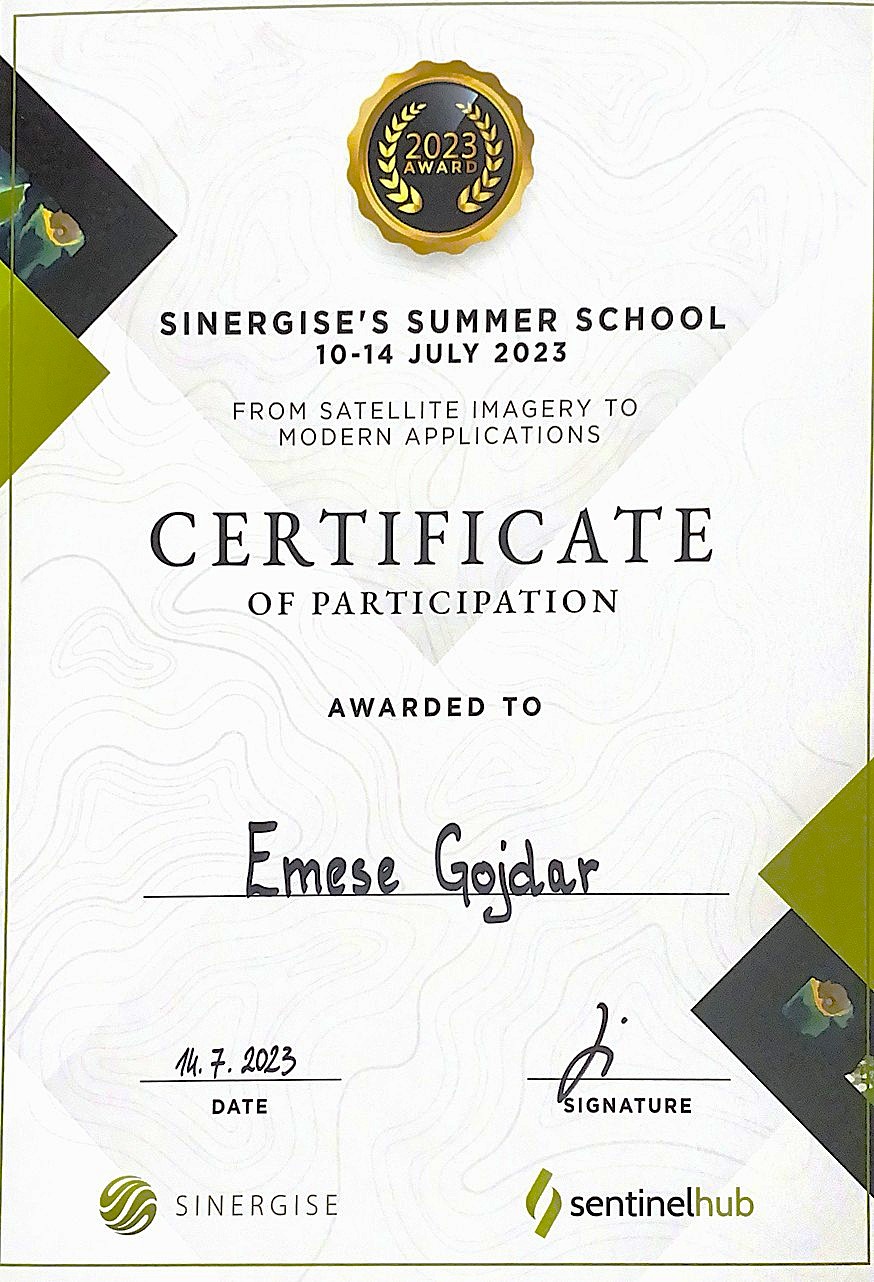 2023
AWARD
SINERGISE'S SUMMER SCHOOL
10-14 JULY 2023
FROM SATELLITE IMAGERY TO
MODERN APPLICATIONS
CERTIFICATE
OF PARTICIPATION
AWARDED TO
Emese Gojdar
14. 7. 2023
DATE
SIGNATURE
SINERGISE
sentinelhub